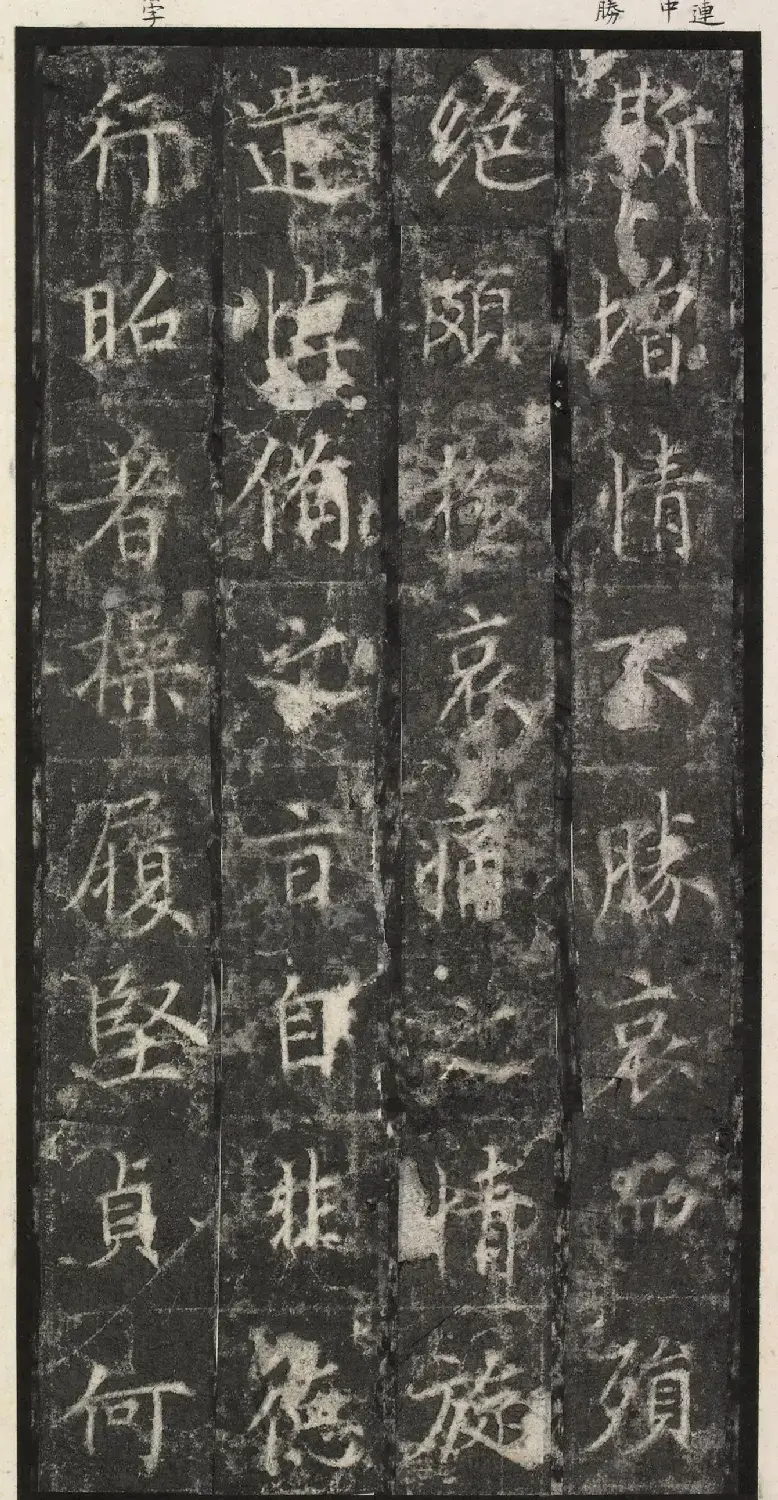 連
中
勝
字
斯增情不勝哀而殞
絕頗極哀痛之情旋
遺悼備之旨自非德
行昭著操履堅貞何